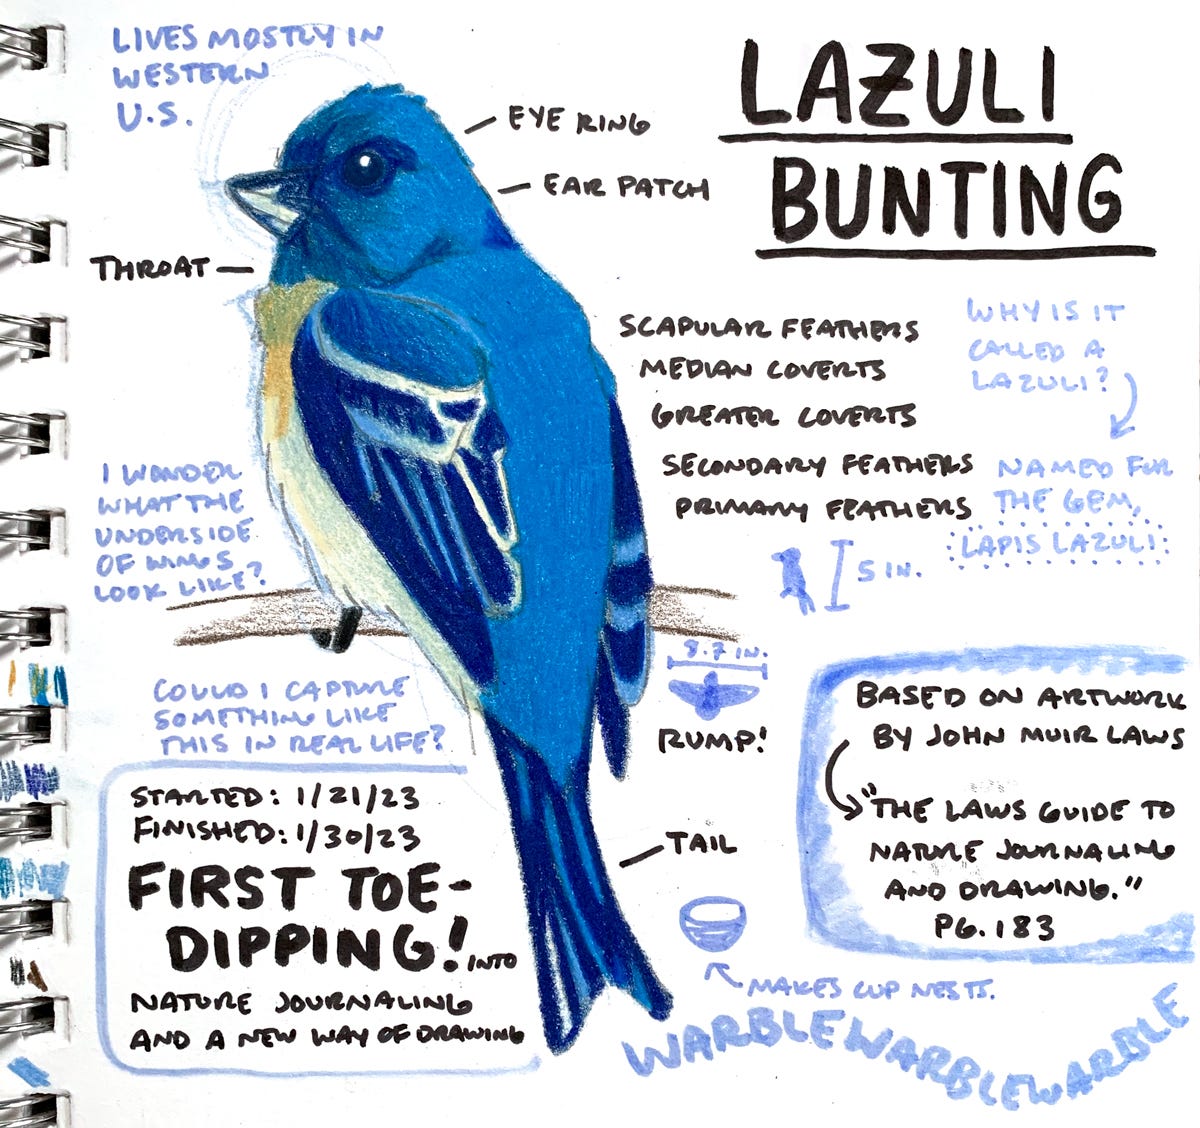 LIVES MOSTLY IN
WESTERN
U.S.
LAZULI
BUNTING
EYE RING
EAR PATCH
THROAT
SCAPULAR FEATHERS
MEDIAN COVERTS
GREATER COVERTS
SECONDARY FEATHERS
PRIMARY FEATHERS
WHY IS IT
CALLED A
LAZULI?
NAMED FOR
THE GEM,
LAPIS LAZULI
5 IN.
I WONDER
WHAT THE
UNDERSIDE
OF WINGS
LOOK LIKE?
8.7 IN.
RUMP!
COULD I CAPTURE
SOMETHING LIKE
THIS IN REAL LIFE?
BASED ON ARTWORK
BY JOHN MUIR LAWS
"THE LAWS GUIDE TO
NATURE JOURNALING
AND DRAWING."
PG. 183
STARTED: 1/21/23
FINISHED: 1/30/23
FIRST TOE-
DIPPING! INTO
NATURE JOURNALING
AND A NEW WAY OF DRAWING
TAIL
MAKES CUP NESTS.
WARBLEWARBLEWARBLE